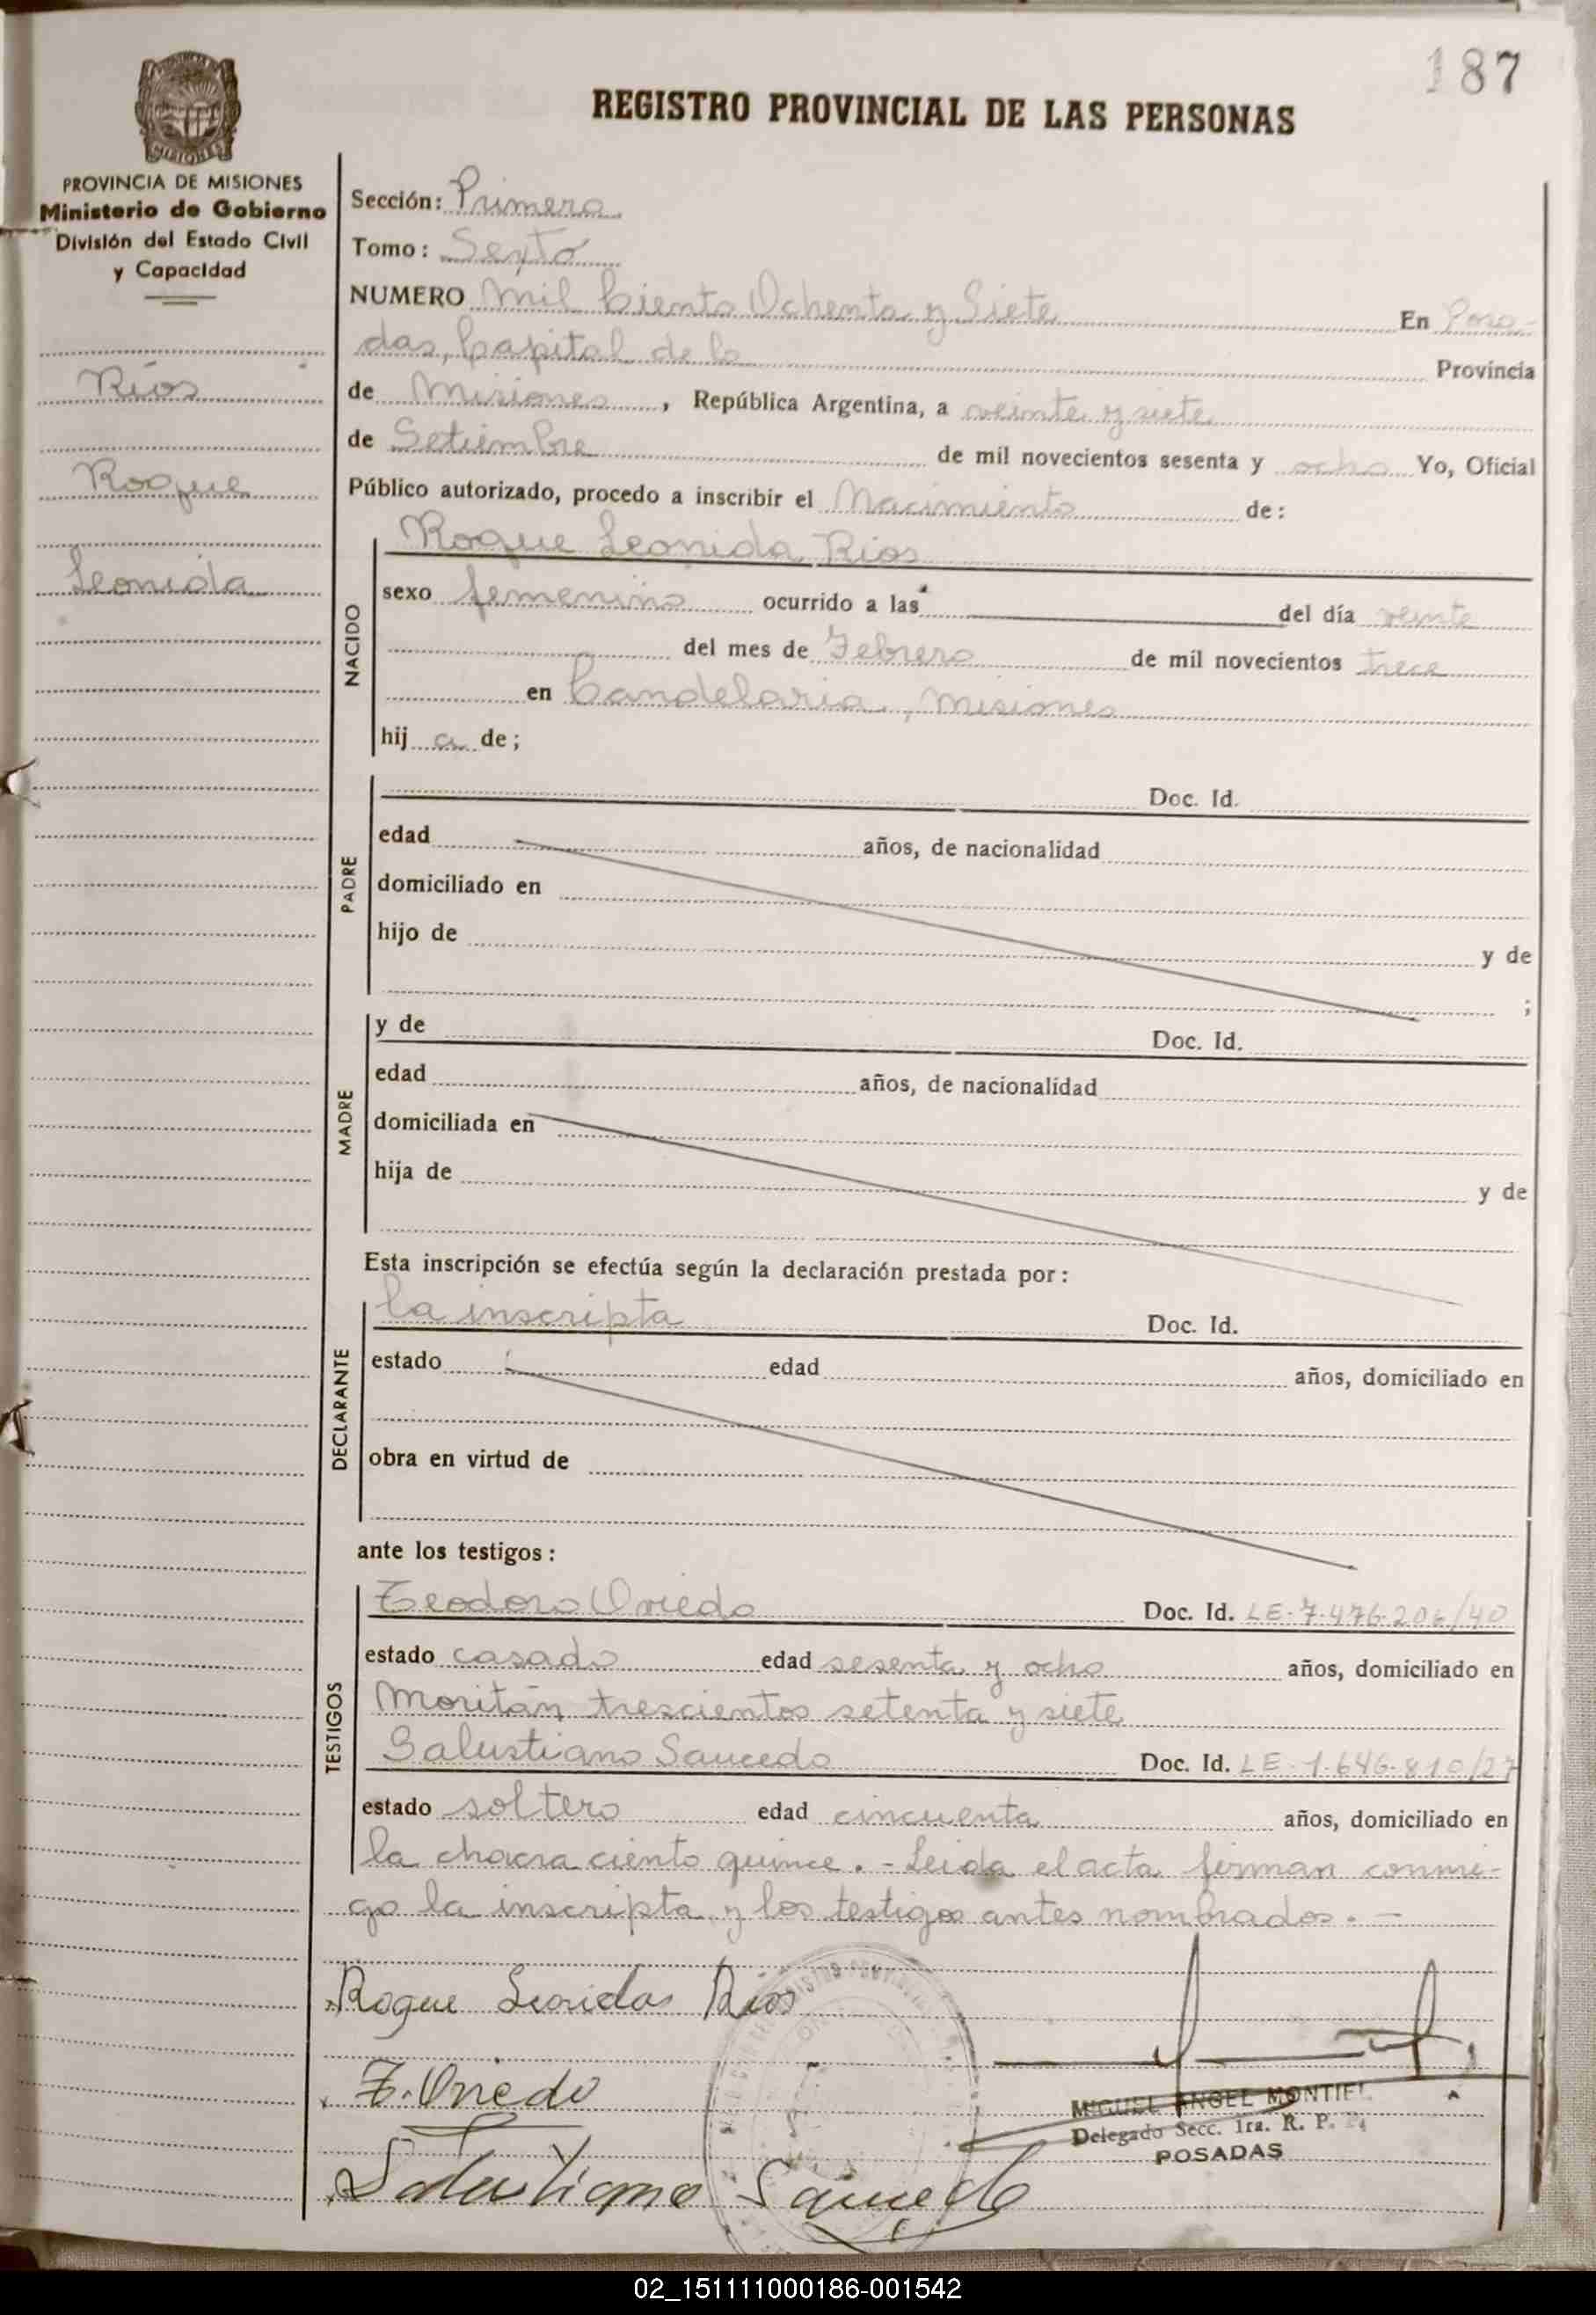 187
REGISTRO PROVINCIAL DE LAS PERSONAS
MISIONES
PROVINCIA DE MISIONES
Ministerio de Gobierno
División del Estado Civil
y Capacidad
Ríos
Roque
Leonida
Sección: Primera
Tomo: Sexto
NUMERO Mil Ciento Ochenta y Siete En Posa-
das, Capital de la Provincia
de Misiones, República Argentina, a veinte y siete
de Setiembre de mil novecientos sesenta y ocho Yo, Oficial
Público autorizado, procedo a inscribir el Nacimiento de:
NACIDO
Roque Leonida Rios
sexo femenino ocurrido a las del día veinte
del mes de Febrero de mil novecientos trece
en Candelaria, Misiones
hij a de;
PADRE
Doc. Id.
edad años, de nacionalidad
domiciliado en
hijo de y de
;
MADRE
y de Doc. Id.
edad años, de nacionalidad
domiciliada en
hija de y de
Esta inscripción se efectúa según la declaración prestada por:
DECLARANTE
la inscripta Doc. Id.
estado edad años, domiciliado en
obra en virtud de
ante los testigos:
TESTIGOS
Teodoro Oviedo Doc. Id. LE-7.476.206/40
estado casado edad sesenta y ocho años, domiciliado en
Moritán trescientos setenta y siete
Salustiano Saucedo Doc. Id. LE-1.646.810/27
estado soltero edad cincuenta años, domiciliado en
la chacra ciento quince.- Leida el acta firman conmi-
go la inscripta y los testigos antes nombrados.-
Roque Leonidas Rios
T. Oviedo
MIGUEL ANGEL MONTIEL
Delegado Secc. 1ra. R. P.
POSADAS
Salustiano Saucedo
02_151111000186-001542